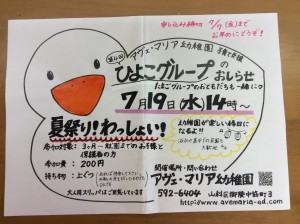 申し込み締切 7/7(金)まで
お早めにどうぞ!
アヴェ・マリア幼稚園 子育て支援
第4回
ひよこグループの
おしらせ
たまごグループのおともだちも一緒に♡
7月19日(水)14時~
夏祭り!わっしょい!
幼稚園が楽しい縁日に
なるよ!!
参加対象:3ヶ月~就園までのお子様と
保護者の方
参加費:200円
持ち物:上ぐつ
大人用スリッパはご用意しています
開催場所・問い合わせ
アヴェ・マリア幼稚園
592-6404 山科区御陵中筋町3
http://www.avemaria-ed.com